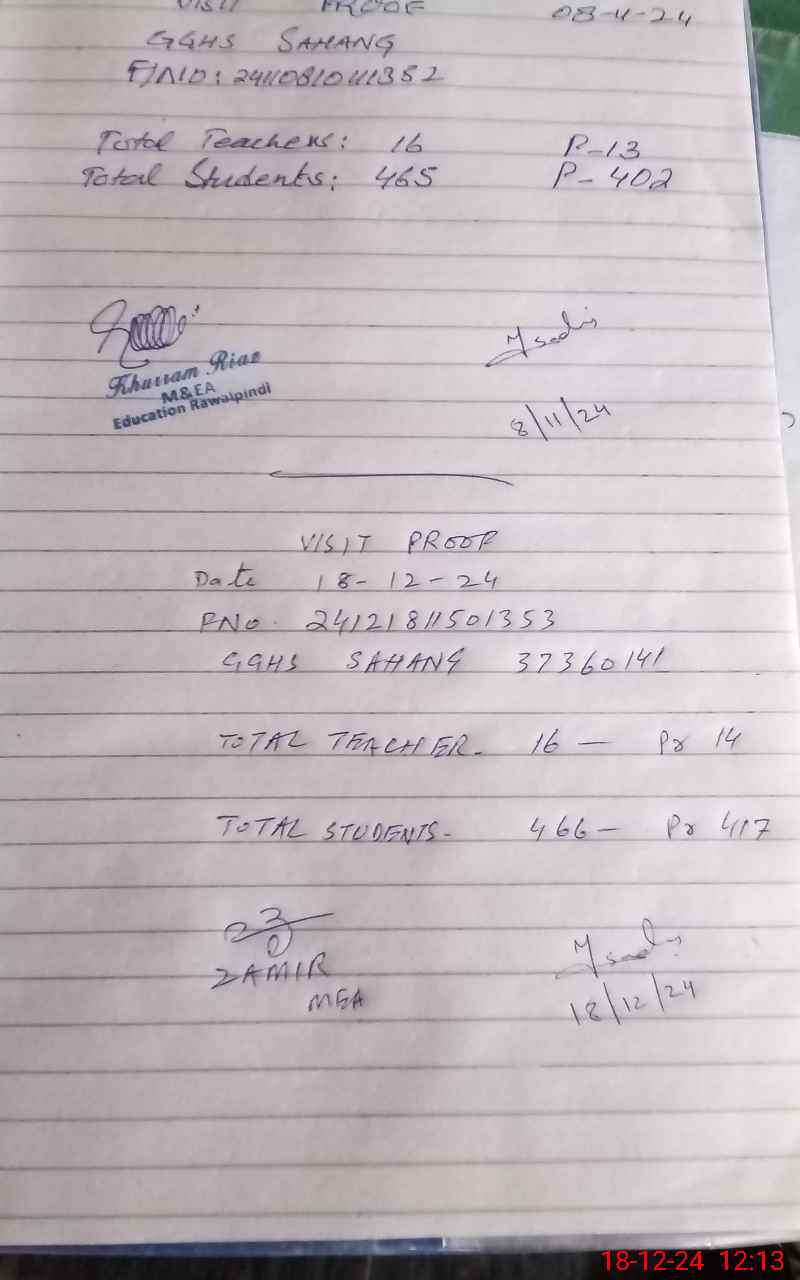 VISIT PROOF 08-11-24
GGHS SAHANG
F/NID: 2411081041352
Total Teachers: 16 P-13
Total Students: 465 P-402
Khurram Riaz
M&EA
Education Rawalpindi
8/11/24
VISIT PROOF
Date 18-12-24
FNo. 24121811501353
GGHS SAHANG 37360141
TOTAL TEACHER- 16 — Pr 14
TOTAL STUDENTS- 466 — Pr 417
ZAMIR
MEA
18/12/24
18-12-24 12:13